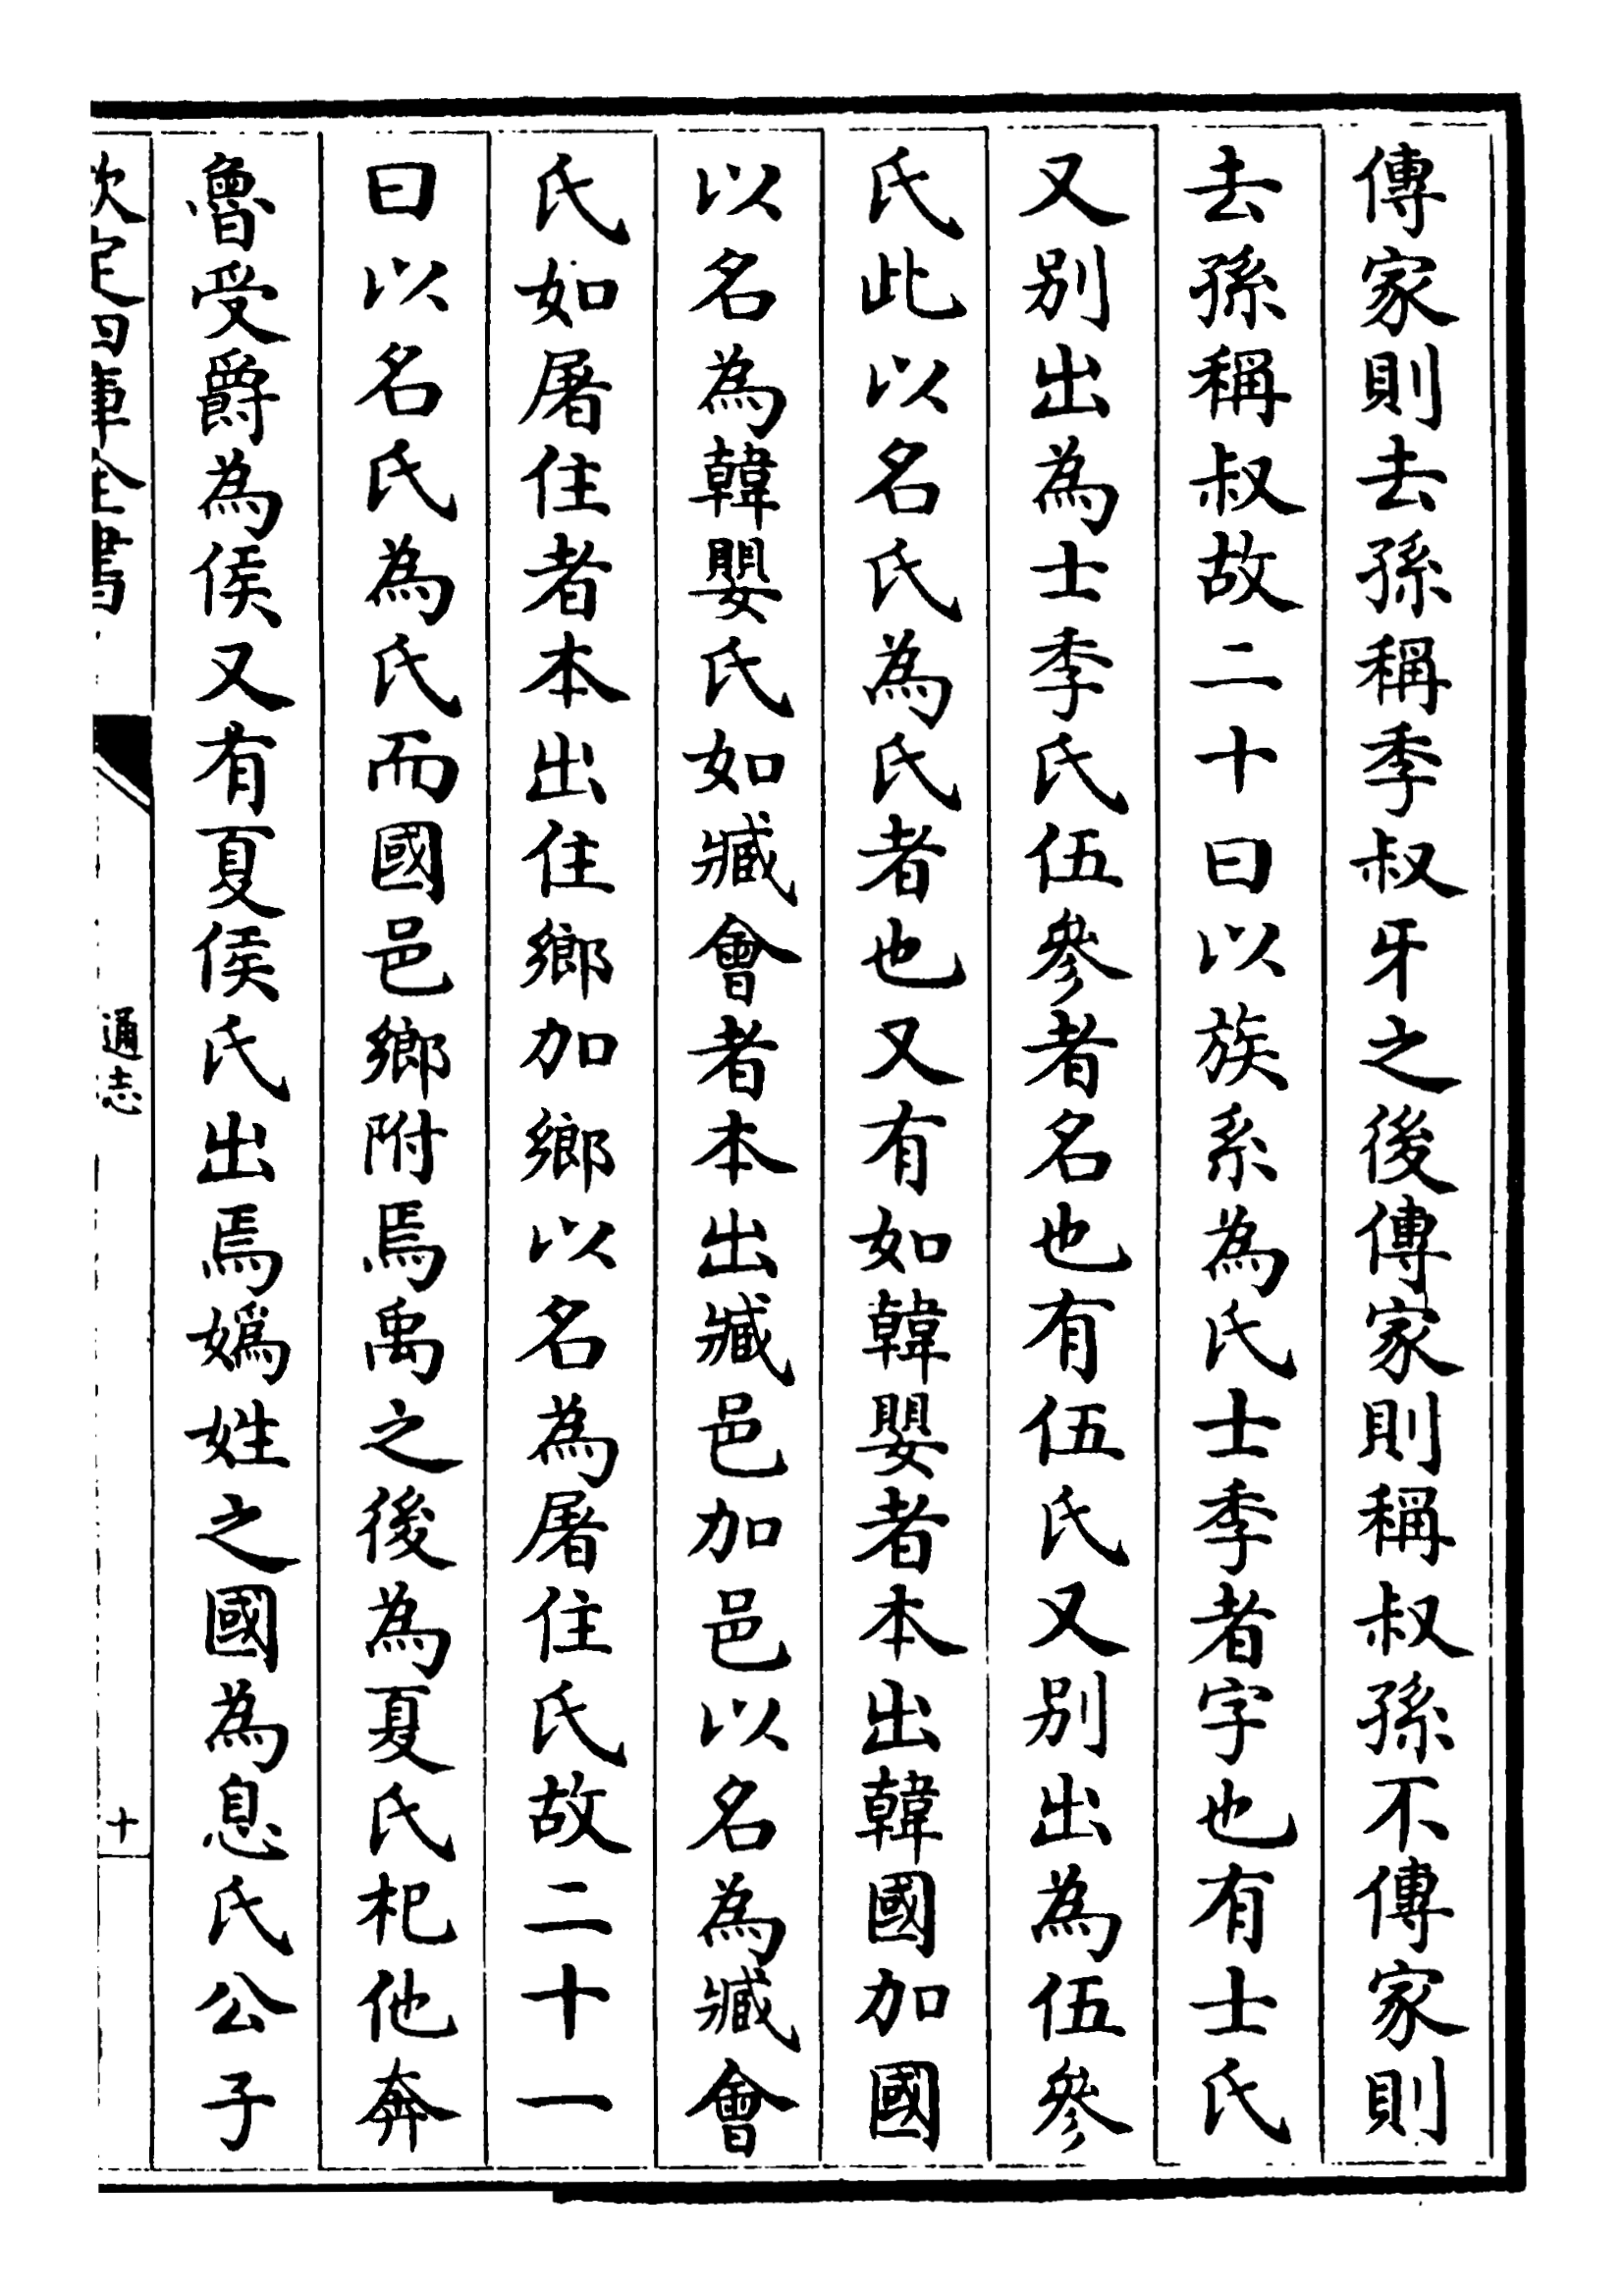 傳家則去孫稱季叔牙之後傳家則稱叔孫不傳家則
去孫稱叔故二十曰以族系為氏士季者字也有士氏
又别出為士季氏伍參者名也有伍氏又别出為伍參
氏此以名氏為氏者也又有如韓嬰者本出韓國加國
以名為韓嬰氏如臧會者本出臧邑加邑以名為臧會
氏如屠住者本出住鄉加鄉以名為屠住氏故二十一
曰以名氏為氏而國邑鄉附焉禹之後為夏氏杞他奔
魯受爵為侯又有夏侯氏出焉媯姓之國為息氏公子
欽定四庫全書
通志
十